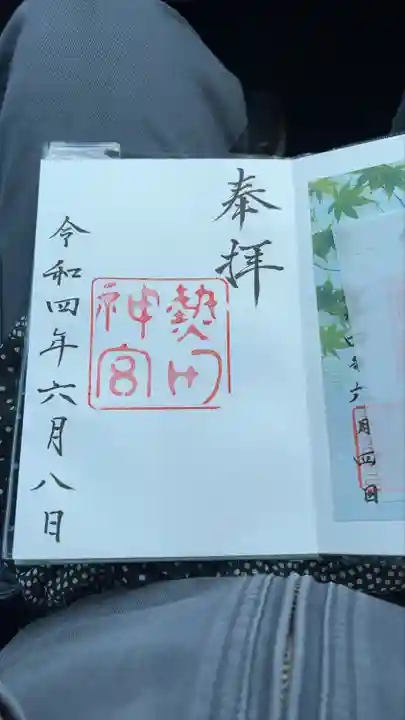 奉拝
熱田
神宮
令和四年六月八日
四年六月四日